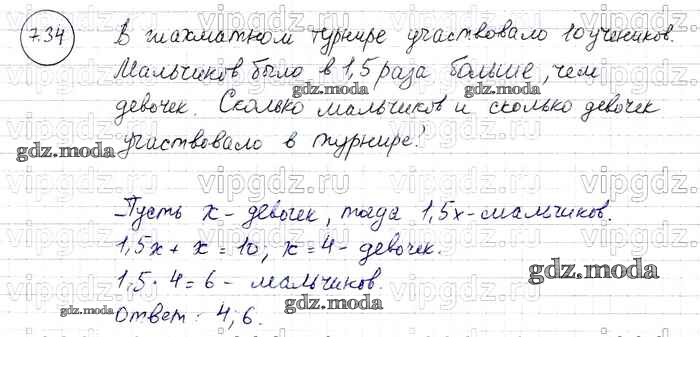 7.34
В шахматном турнире участвовало 10 учеников.
Мальчиков было в 1,5 раза больше, чем
девочек. Сколько мальчиков и сколько девочек
участвовало в турнире?
Пусть x - девочек, тогда 1,5x - мальчиков.
1,5x + x = 10; x = 4 - девочек.
1,5 · 4 = 6 - мальчиков.
Ответ: 4; 6.
gdz.moda
gdz.moda
gdz.moda
gdz.moda
gdz.moda
gdz.moda
vipgdz.ru